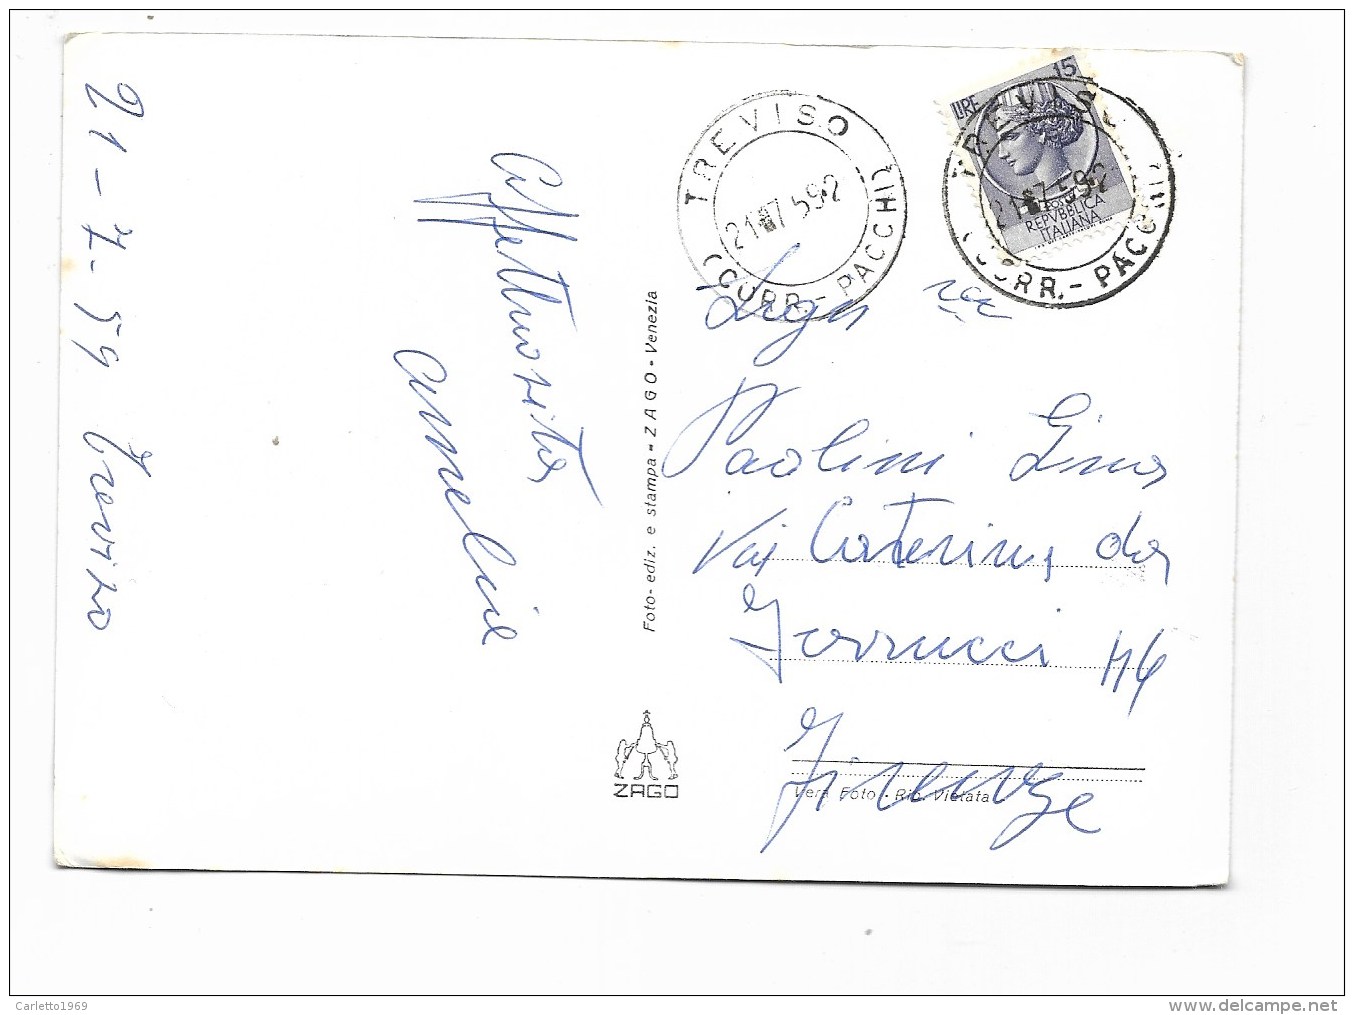 21-7-59 Treviso
Affettuosità
TREVISO
21 7 59-2
(CORR.-PACCHI)
LIRE 15
POSTE
REPVBBLICA
ITALIANA
TREVISO
21 7 59-2
(CORR.-PACCHI)
Foto- ediz. e stampa - ZAGO - Venezia
Paolini Gino
Via Caterina da
Ferrucci
Firenze
ZAGO
Vera Foto - Rip. Vietata
Carletto1969
delcampe.net